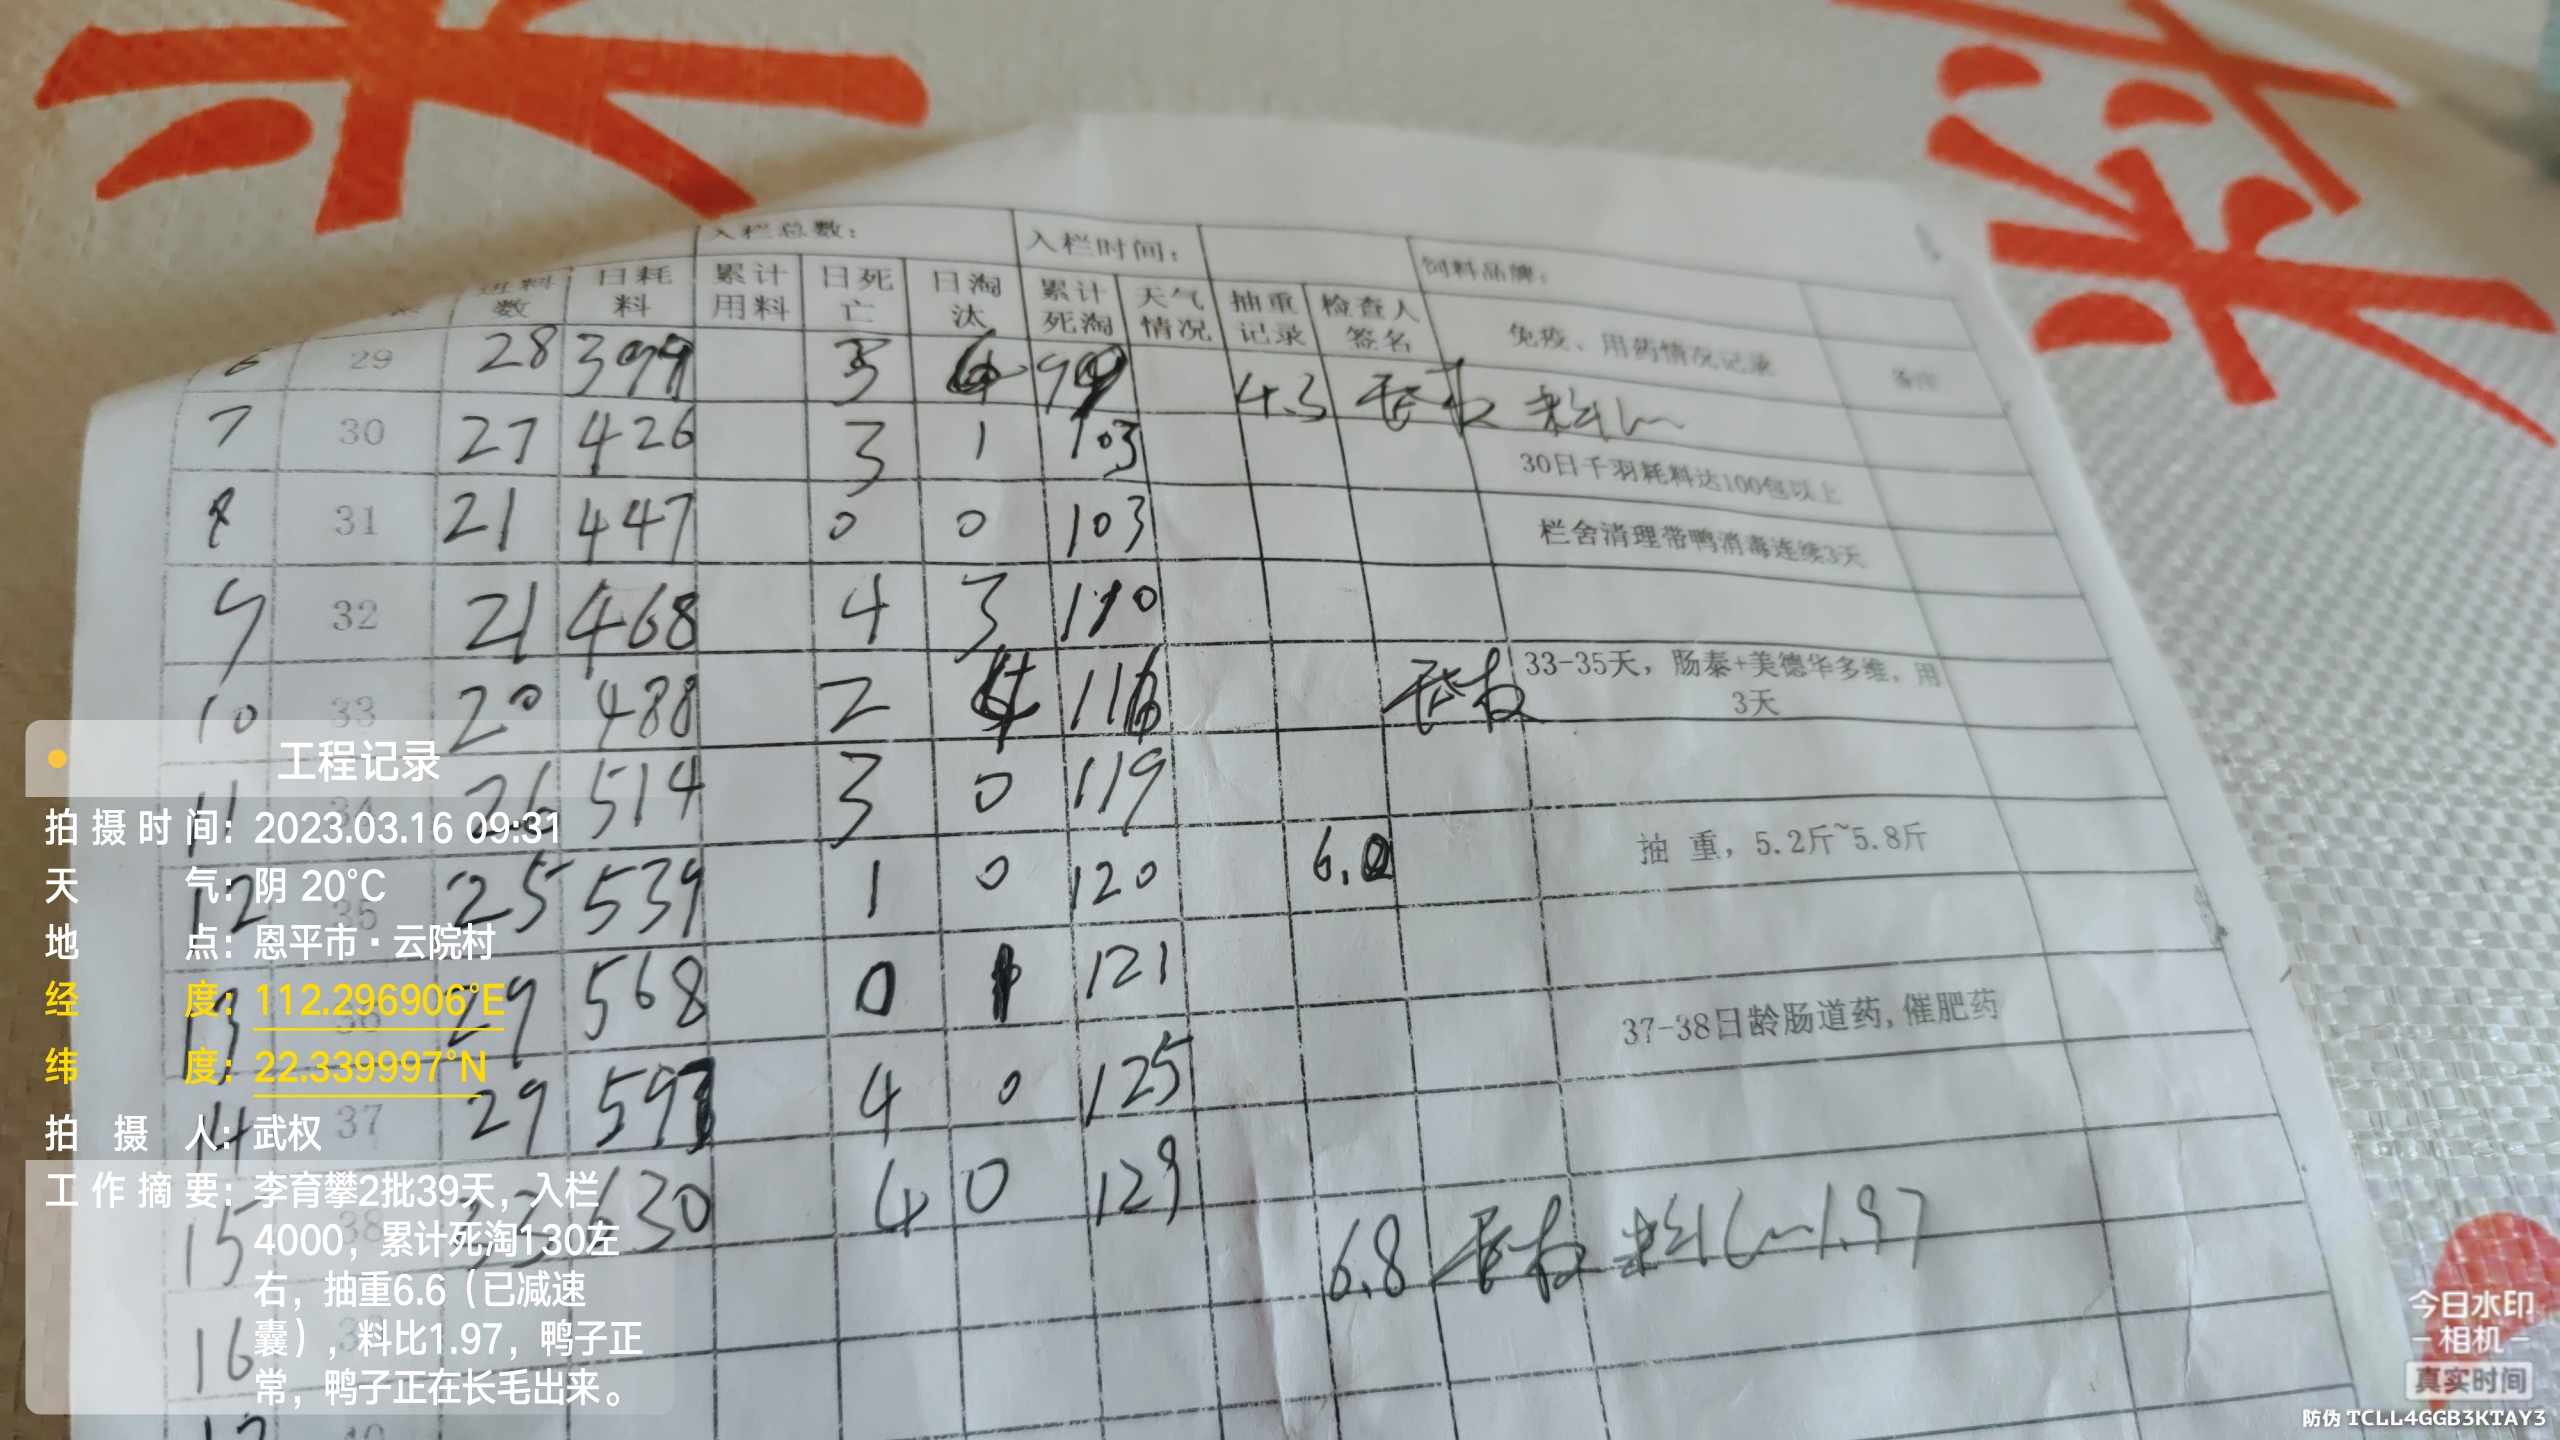 米
入栏总数： 入栏时间： 饲料品牌：
进料数 日耗料 累计用料 日死亡 日淘汰 累计死淘 天气情况 抽重记录 检查人签名 免疫、用药情况记录 备注
6 29 28 399 3 99 4.3 料比
7 30 27 426 3 1 103 30日千羽耗料达100包以上
8 31 21 447 0 0 103 栏舍清理带鸭消毒连续3天
9 32 21 468 4 3 110
10 33 20 488 2 4 116 33-35天，肠泰+美德华多维，用3天
11 34 26 514 3 0 119
12 35 25 539 1 0 120 6.0 抽 重，5.2斤~5.8斤
13 36 29 568 0 1 121
14 37 29 597 4 0 125 37-38日龄肠道药,催肥药
15 38 33 630 4 0 129 6.8 料比1.97
16 39
17 40
工程记录
拍摄时间：2023.03.16 09:31
天气：阴 20°C
地点：恩平市·云院村
经度：112.296906°E
纬度：22.339997°N
拍摄人：武权
工作摘要：李育攀2批39天，入栏
4000，累计死淘130左
右，抽重6.6（已减速
囊），料比1.97，鸭子正
常，鸭子正在长毛出来。
今日水印
相机
真实时间
防伪 TCLL4GGB3KTAY3